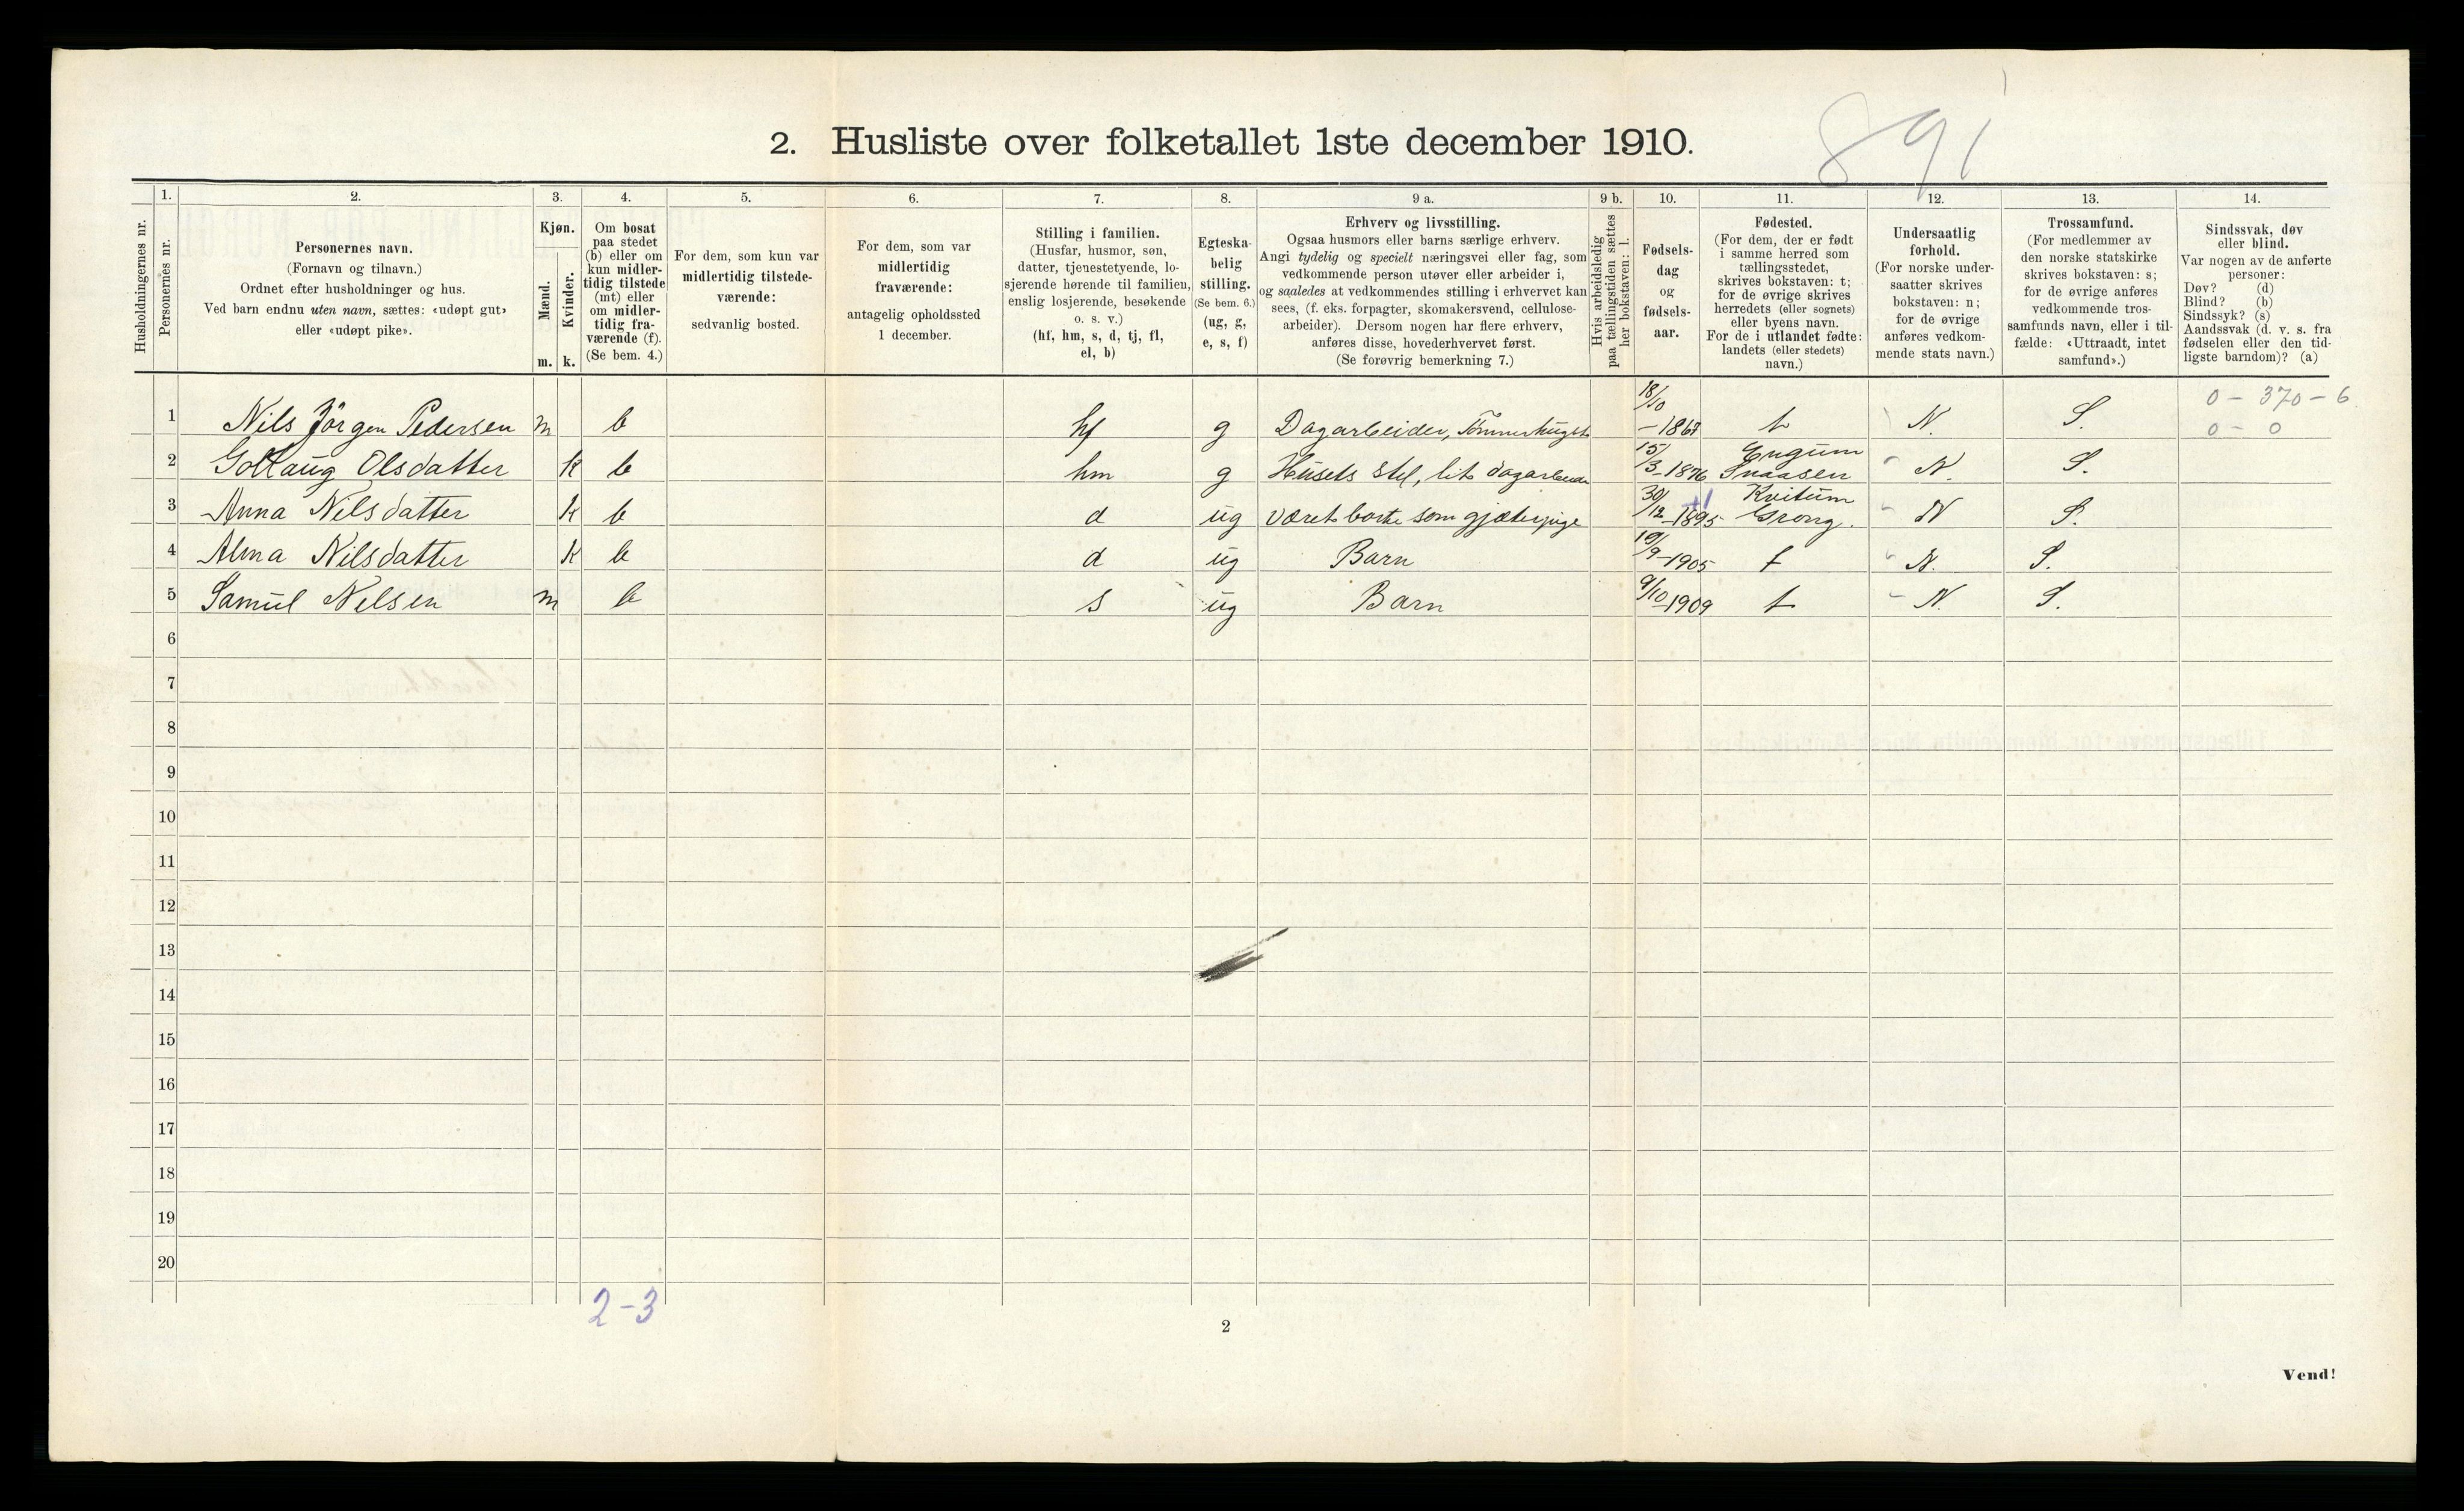 891
2. Husliste over folketallet 1ste december 1910.
Husholdningernes nr.
1.
Personernes nr.
2.
Personernes navn.
(Fornavn og tilnavn.)
Ordnet efter husholdninger og hus.
Ved barn endnu uten navn, sættes: «udøpt gut»
eller «udøpt pike».
3.
Kjøn.
Mænd.
Kvinder.
m. k.
4.
Om bosat
paa stedet
(b) eller om
kun midler-
tidig tilstede
(mt) eller
om midler-
tidig fra-
værende (f).
(Se bem. 4.)
5.
For dem, som kun var
midlertidig tilstede-
værende:
sedvanlig bosted.
6.
For dem, som var
midlertidig
fraværende:
antagelig opholdssted
1 december.
7.
Stilling i familien.
(Husfar, husmor, søn,
datter, tjenestetyende, lo-
sjerende hørende til familien,
enslig losjerende, besøkende
o. s. v.)
(hf, hm, s, d, tj, fl,
el, b)
8.
Egteska-
belig
stilling.
(Se bem. 6.)
(ug, g,
e, s, f)
9 a.
Erhverv og livsstilling.
Ogsaa husmors eller barns særlige erhverv.
Angi tydelig og specielt næringsvei eller fag, som
vedkommende person utøver eller arbeider i,
og saaledes at vedkommendes stilling i erhvervet kan
sees, (f. eks. forpagter, skomakersvend, cellulose-
arbeider). Dersom nogen har flere erhverv,
anføres disse, hovederhvervet først.
(Se forøvrig bemerkning 7.)
9 b.
Hvis arbeidsledig
paa tællingstiden sættes
her bokstaven: l.
10.
Fødsels-
dag
og
fødsels-
aar.
11.
Fødested.
(For dem, der er født
i samme herred som
tællingsstedet,
skrives bokstaven: t;
for de øvrige skrives
herredets (eller sognets)
eller byens navn.
For de i utlandet fødte:
landets (eller stedets)
navn.)
12.
Undersaatlig
forhold.
(For norske under-
saatter skrives
bokstaven: n;
for de øvrige
anføres vedkom-
mende stats navn.)
13.
Trossamfund.
(For medlemmer av
den norske statskirke
skrives bokstaven: s;
for de øvrige anføres
vedkommende tros-
samfunds navn, eller i til-
fælde: «Uttraadt, intet
samfund».)
14.
Sindssvak, døv
eller blind.
Var nogen av de anførte
personer:
Døv? (d)
Blind? (b)
Sindssyk? (s)
Aandssvak (d. v. s. fra
fødselen eller den tid-
ligste barndom)? (a)
1 Nils Jörgen Pedersen m b hf g Dagarbeider, Tömmerhugst 18/10 -1867 t N. S. 0 - 370 - 6
0 - 0
2 Gollaug Olsdatter k b hm g Husets stel, lit dagarbeide 15/3-1876 Engum Snaasen N. S.
3 Anna Nilsdatter k b d ug Været borte som gjæterpige 30/12-1895 Kvitum Grong. N S.
4 Alma Nilsdatter k b d ug Barn 19/9-1905 t N. S.
5 Samul Nilsen m b s ug Barn 9/10-1909 t N. S.
6
7
8
9
10
11
12
13
14
15
16
17
18
19
20
2-3
2
Vend!